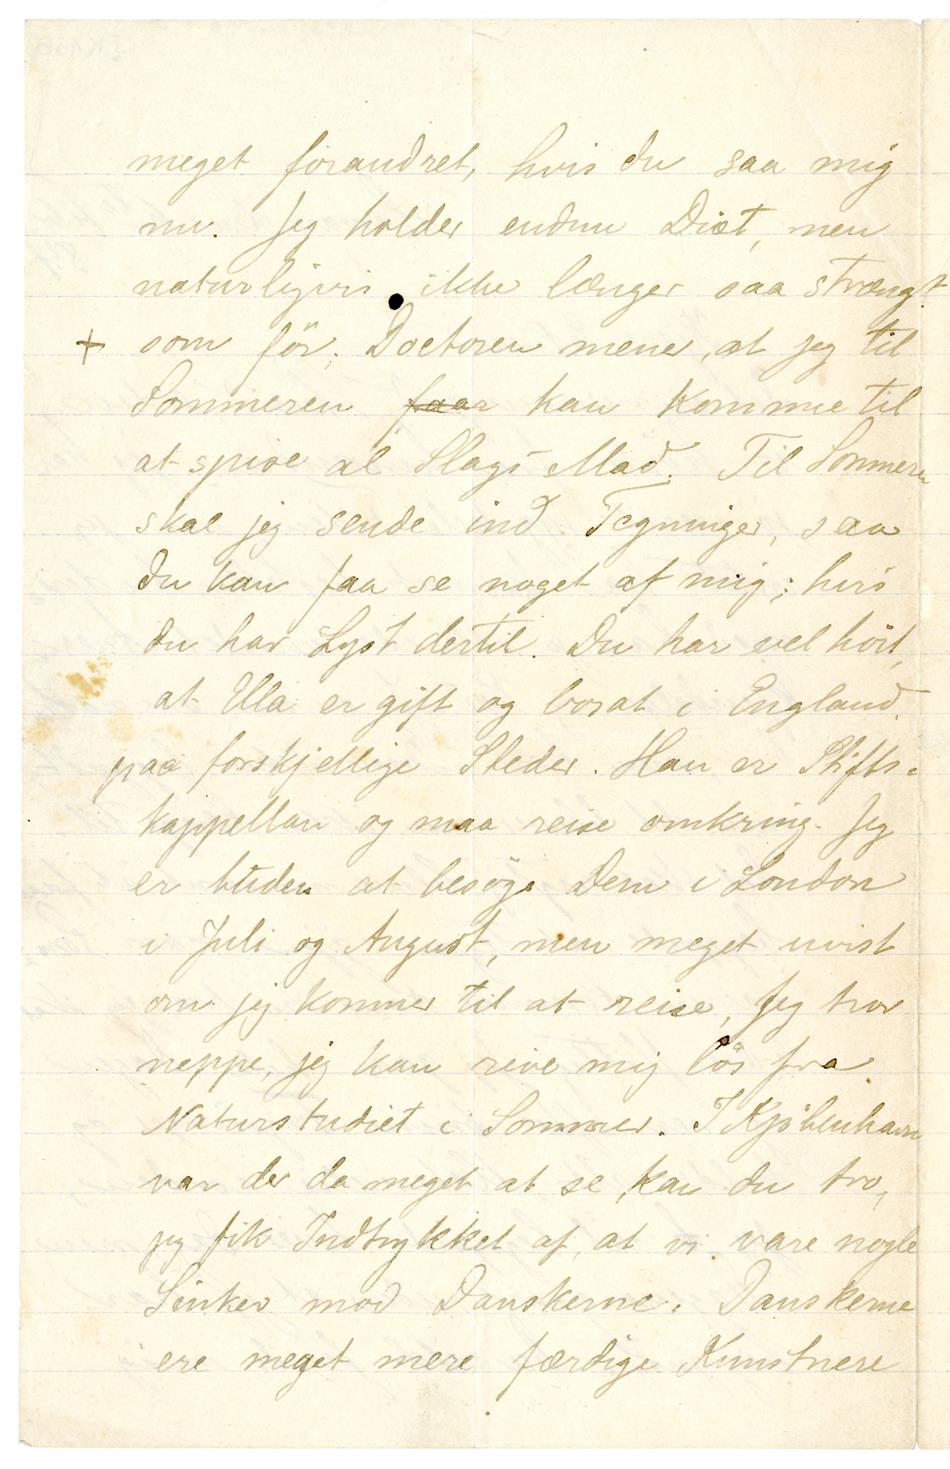 meget forandret, hvis du saa mig
nu. Jeg holder endnu Diæt, men
naturligvis ikke længer saa strængt
+ som før. Doctoren mener, at jeg til
Sommeren faar kan komme til
at spise al Slags Mad. Til Sommeren
skal jeg sende ind Tegninger, saa
du kan faa se noget af mig; hvis
du har Lyst dertil. Du har vel hört,
at Ulla er gift og bosat i England.
paa forskjellige Steder. Han er Stifts-
kappellan og maa reise omkring. Jeg
er buden at besöge Dem i London
i Juli og August, men meget uvist
om jeg kommer til at reise, Jeg tror
neppe, jeg kan rive mig lös fra
Naturstudiet i Sommer. I Kjöbenhavn
var der da meget at se, kan du tro,
jeg fik Indtrykket af, at vi vare nogle
Sinker mod Danskerne. Danskerne
ere meget mere færdige Kunstnere